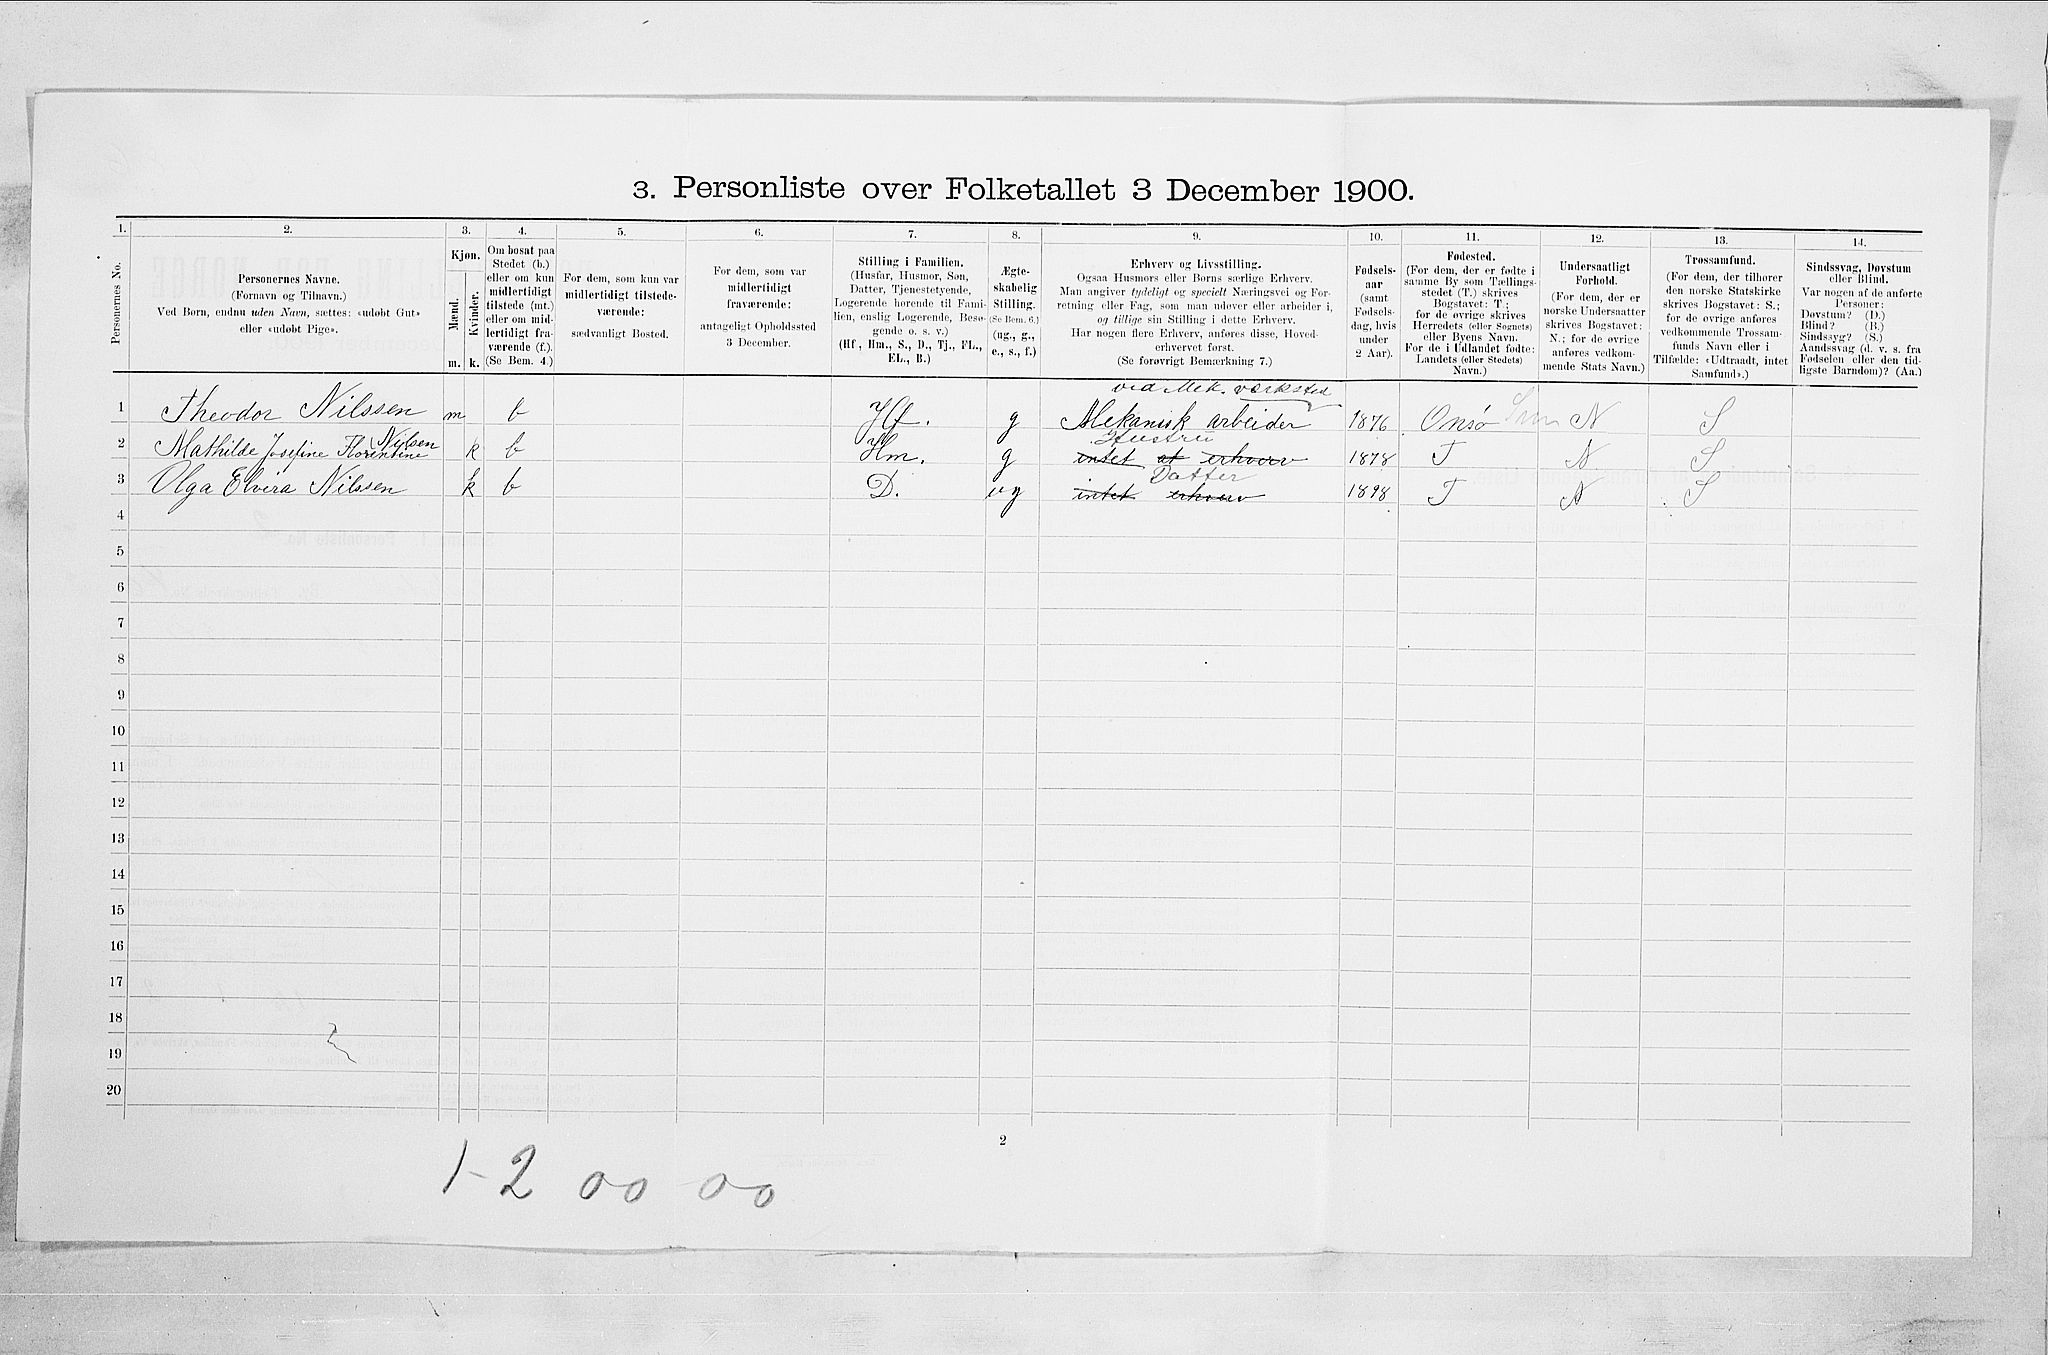 3. Personliste over Folketallet 3 December 1900.
1. 2. 3. 4. 5. 6. 7. 8. 9. 10. 11. 12. 13. 14.
Personernes No.
Personernes Navne.
(Fornavn og Tilnavn.)
Ved Børn, endnu uden Navn, sættes: «udøbt Gut»
eller «udøbt Pige».
Kjøn.
Mænd.
Kvinder.
m. k.
Om bosat paa
Stedet (b.)
eller om kun
midlertidigt
tilstede (mt.)
eller om mid-
lertidigt fra-
værende (f.).
(Se Bem. 4.)
For dem, som kun var
midlertidigt tilstede-
værende:
sædvanligt Bosted.
For dem, som var
midlertidigt
fraværende:
antageligt Opholdssted
3 December.
Stilling i Familien.
(Husfar, Husmor, Søn,
Datter, Tjenestetyende,
Logerende hørende til Fami-
lien, enslig Logerende, Besø-
gende o. s. v.)
(Hf., Hm., S., D., Tj., FL.,
EL., B.)
Ægte-
skabelig
Stilling.
(Se Bem. 6.)
(ug., g.,
e., s., f.)
Erhverv og Livsstilling.
Ogsaa Husmors eller Børns særlige Erhverv.
Man angiver tydeligt og specielt Næringsvei og For-
retning eller Fag, som man udøver eller arbeider i,
og tillige sin Stilling i dette Erhverv.
Har nogen flere Erhverv, anføres disse, Hoved-
erhvervet først.
(Se forøvrigt Bemærkning 7.)
Fødsels-
aar
(samt
Fødsels-
dag, hvis
under
2 Aar).
Fødested.
(For dem, der er fødte i
samme By som Tællings-
stedet (T.) skrives
Bogstavet: T;
for de øvrige skrives
Herredets (eller Sognets)
eller Byens Navn.
For de i Udlandet fødte:
Landets (eller Stedets)
Navn.)
Undersaatligt
Forhold.
(For dem, der er
norske Undersaatter
skrives Bogstavet:
N.; for de øvrige
anføres vedkom-
mende Stats Navn.)
Trossamfund.
(For dem, der tilhører
den norske Statskirke
skrives Bogstavet: S.;
for de øvrige anføres
vedkommende Trossam-
funds Navn eller i
Tilfælde: «Udtraadt, intet
Samfund».)
Sindssvag, Døvstum
eller Blind.
Var nogen af de anførte
Personer:
Døvstum? (D.)
Blind? (B.)
Sindssyg? (S.)
Aandssvag (d. v. s. fra
Fødselen eller den tid-
ligste Barndom)? (Aa.)
ved Mek. værksted
1 Theodor Nilssen m b Hf. g Mekanisk arbeider 1876 Onsø N S
Nilsen Hustru
2 Mathilde Josefine Florentine k b Hm. g intet at erhverv 1878 T N. S
Datter
3 Olga Elvira Nilssen k b D. ug intet erhverv 1898 T N S
4
5
6
7
8
9
10
11
12
13
14
15
16
17
18
19
20
2
1-2 00-00